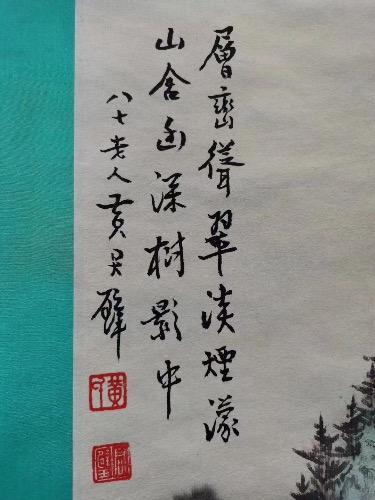 層巒聳翠淡煙濛
山舍幽深樹影中
八十老人黃君璧